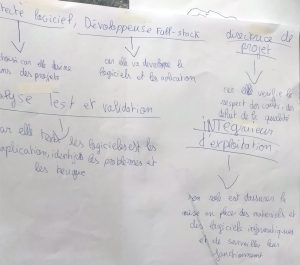 tecte logiciel, Développeuse Full-stack
directrice de projet
car elle va developer le
logiciels et les aplication
des projets
car elle verifie le
respect des couts, des
délait de la qualité
lyse Test et validation
ar elle test les logicieles et les
application, identifie les problèmes et
les beugue
INTEgraieur
d'exploitation
son role est d'assurer la
mise en place des materiels et
des logiciels informatiques
et de surveiller leur
fonctionnement